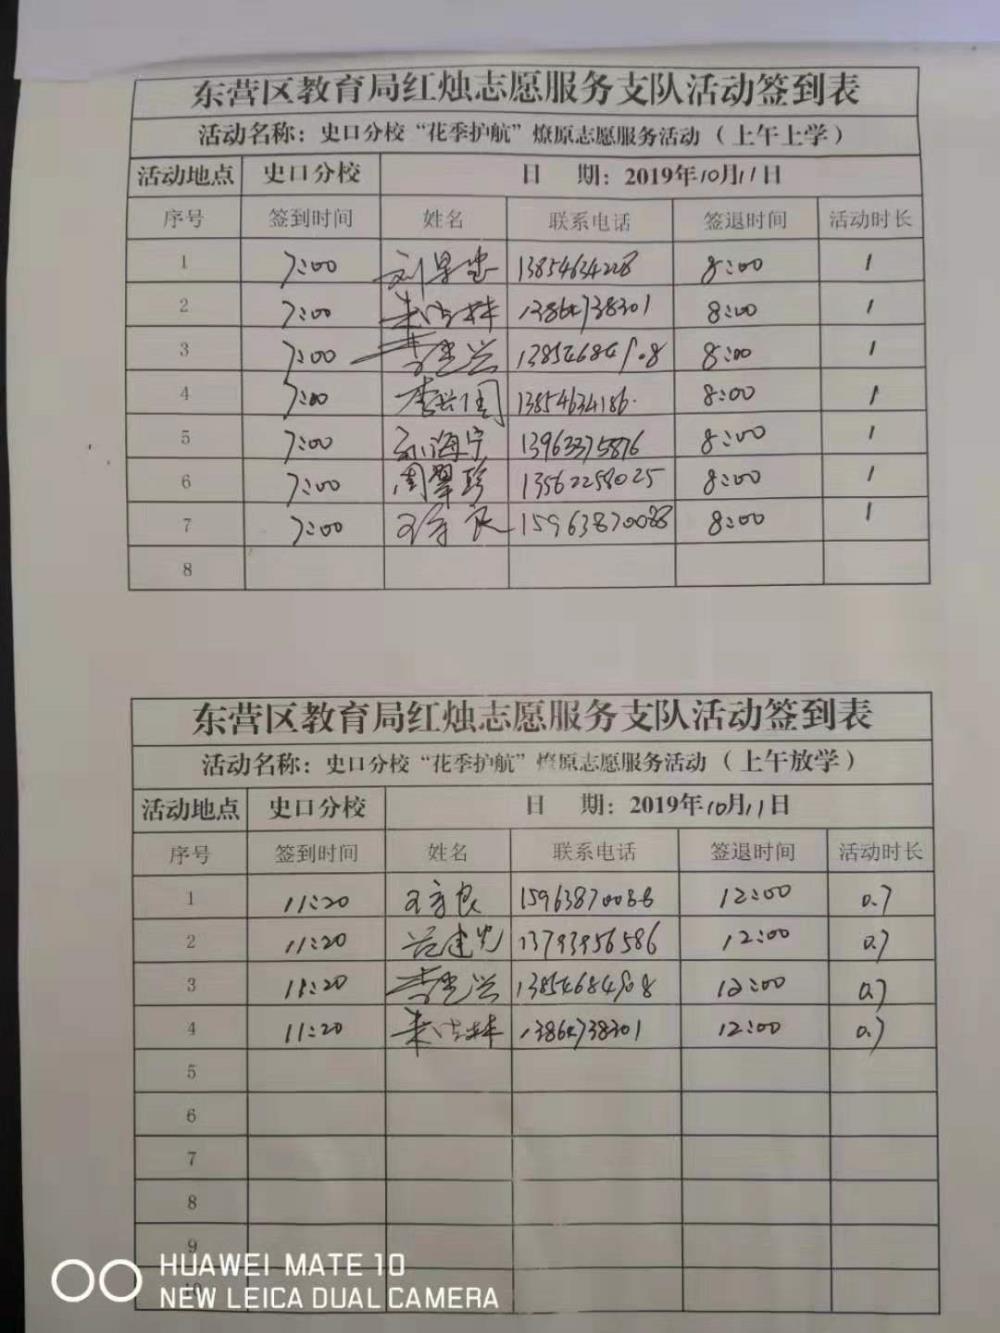 东营区教育局红烛志愿服务支队活动签到表
活动名称：史口分校“花季护航”燎原志愿服务活动（上午上学）
活动地点 史口分校 日 期：2019年10月11日
序号 签到时间 姓名 联系电话 签退时间 活动时长
1 7:00 13854634228 8:00 1
2 7:00 8:00 1
3 7:00 8:00 1
4 7:00 李兴国 13854634186 8:00 1
5 7:00 刘海宁 13963375876 8:00 1
6 7:00 周翠珍 13562258025 8:00 1
7 7:00 王守良 15963870088 8:00 1
8
东营区教育局红烛志愿服务支队活动签到表
活动名称：史口分校“花季护航”燎原志愿服务活动（上午放学）
活动地点 史口分校 日 期：2019年10月11日
序号 签到时间 姓名 联系电话 签退时间 活动时长
1 11:20 王守良 15963870088 12:00 0.7
2 11:20 范建光 13793956586 12:00 0.7
3 11:20 12:00 0.7
4 11:20 12:00 0.7
5
6
7
8
9
10
HUAWEI MATE 10
NEW LEICA DUAL CAMERA